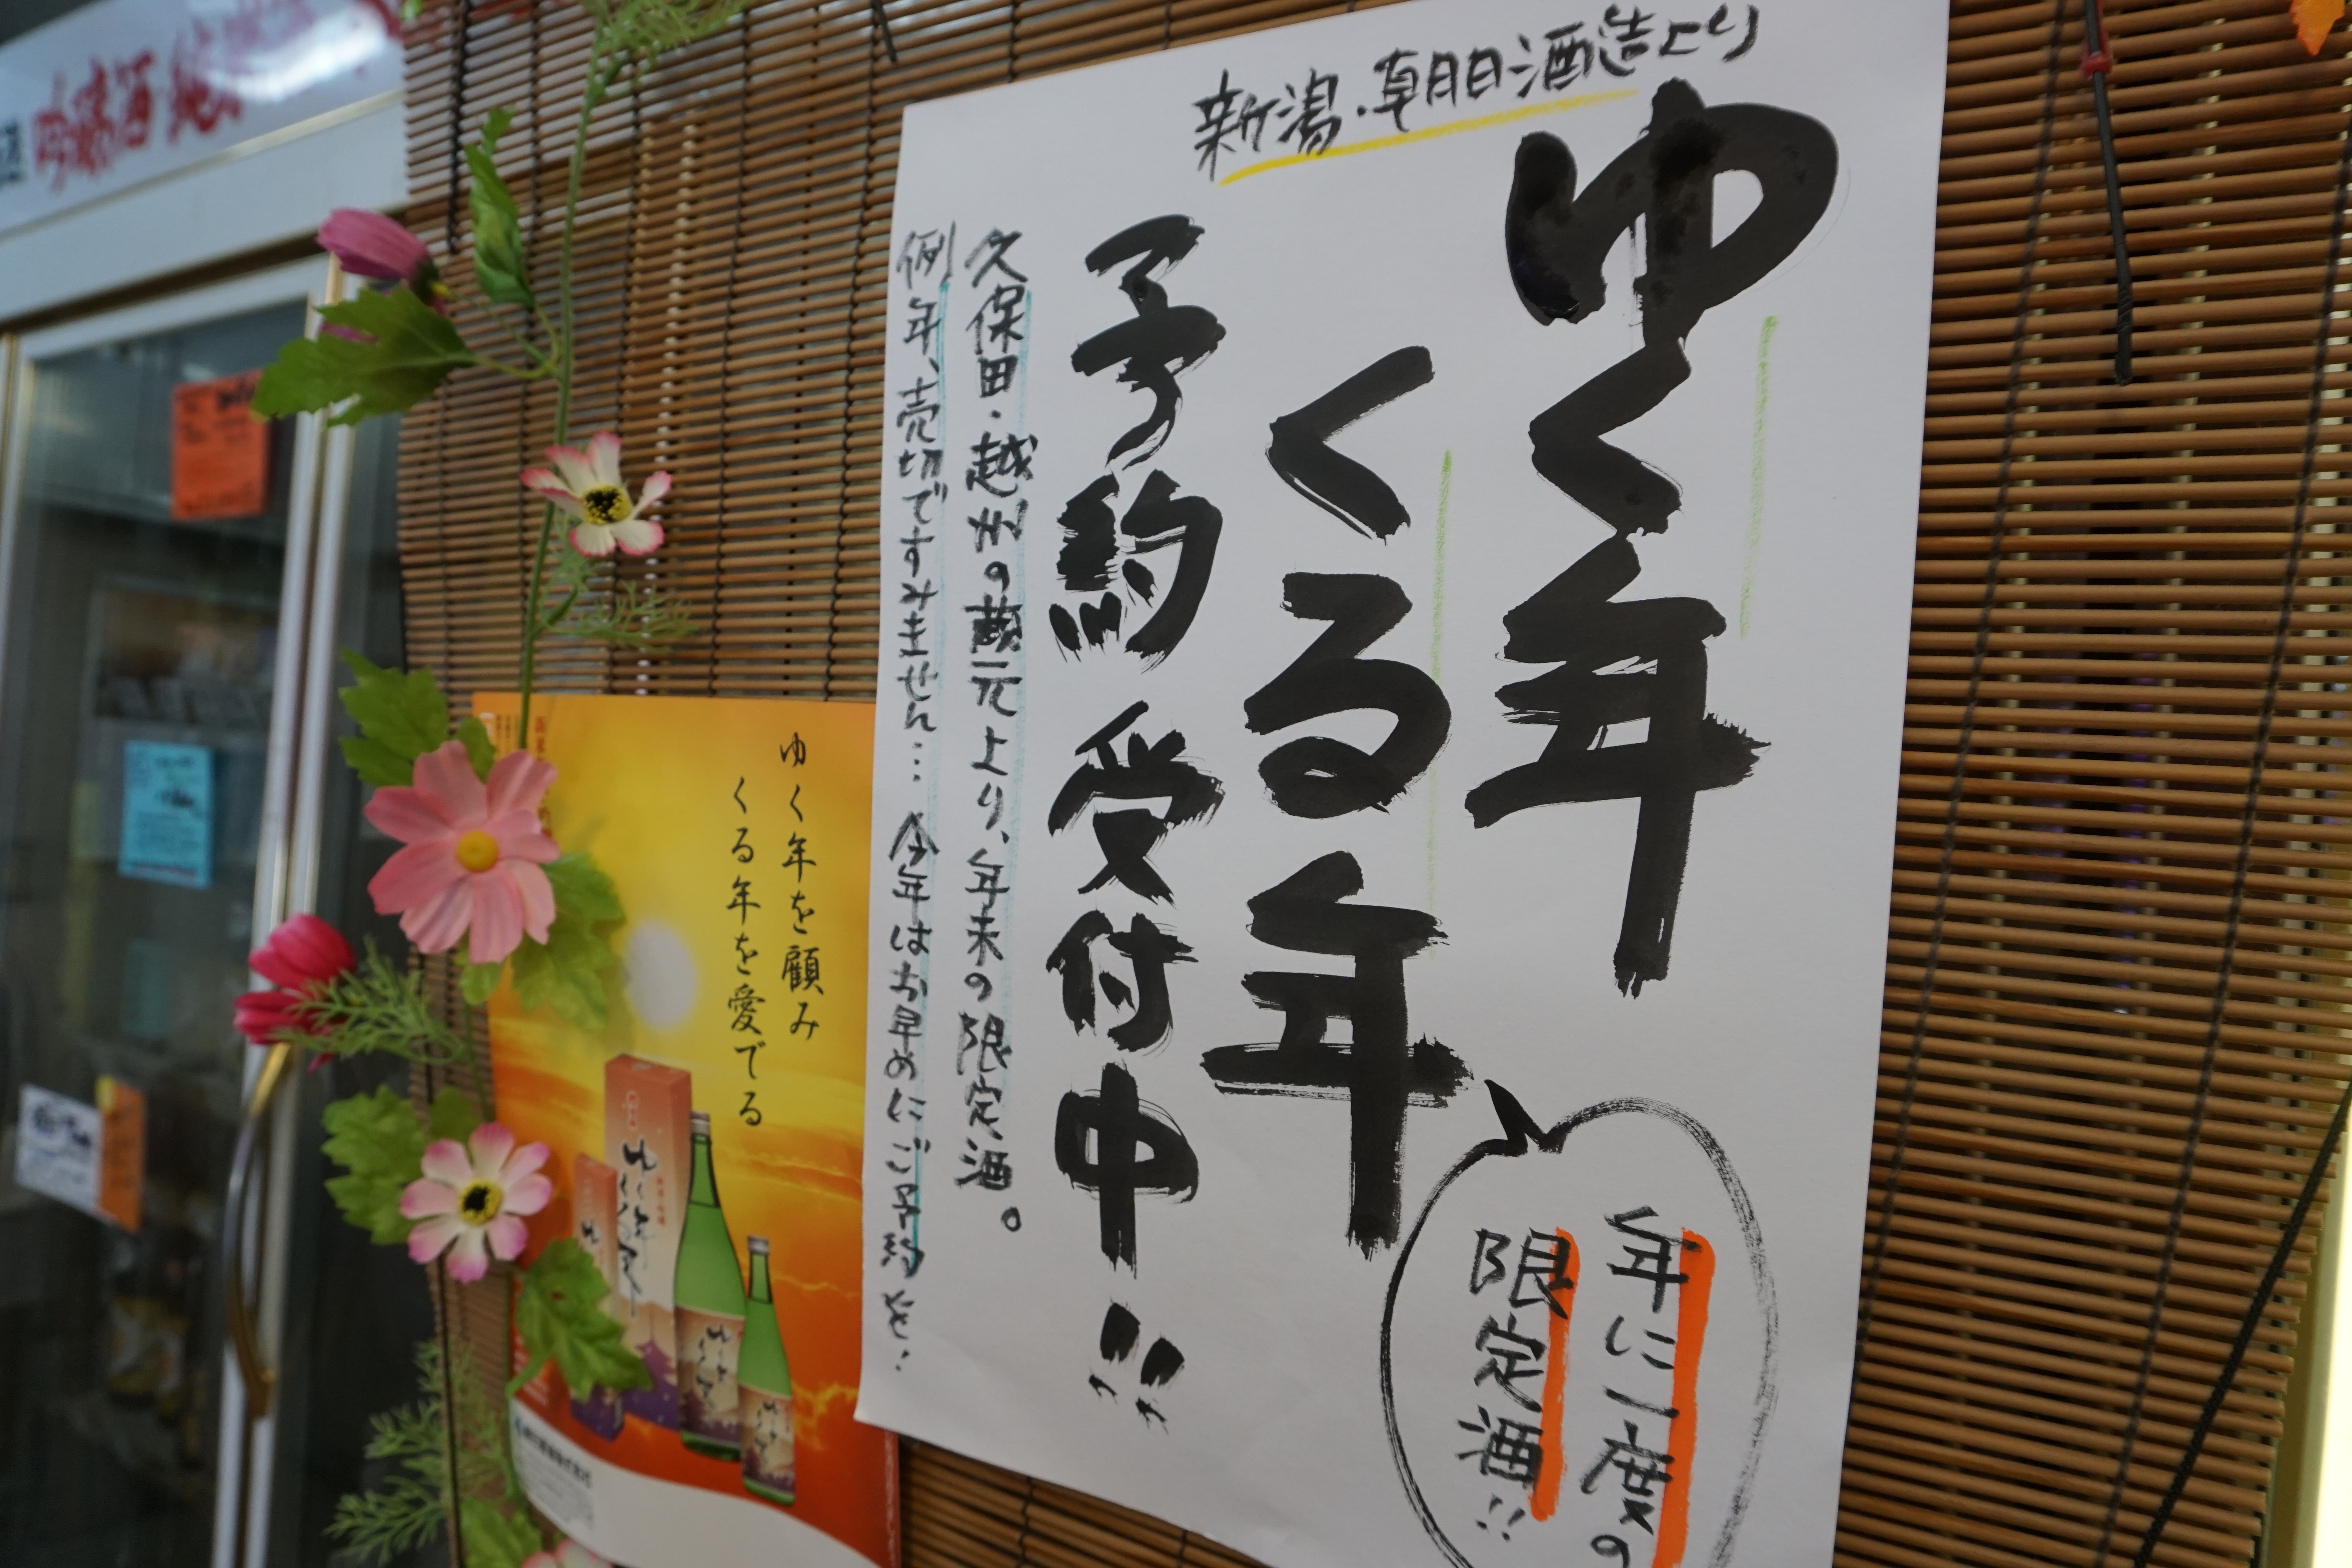 新潟・朝日酒造より
ゆく年
くる年
予約受付中!!
久保田・越州の蔵元より、年末の限定酒。
例年、売切ですみません… 今年はお早めにご予約を!
年に一度の
限定酒!!
ゆく年を顧み
くる年を愛でる
吟醸酒